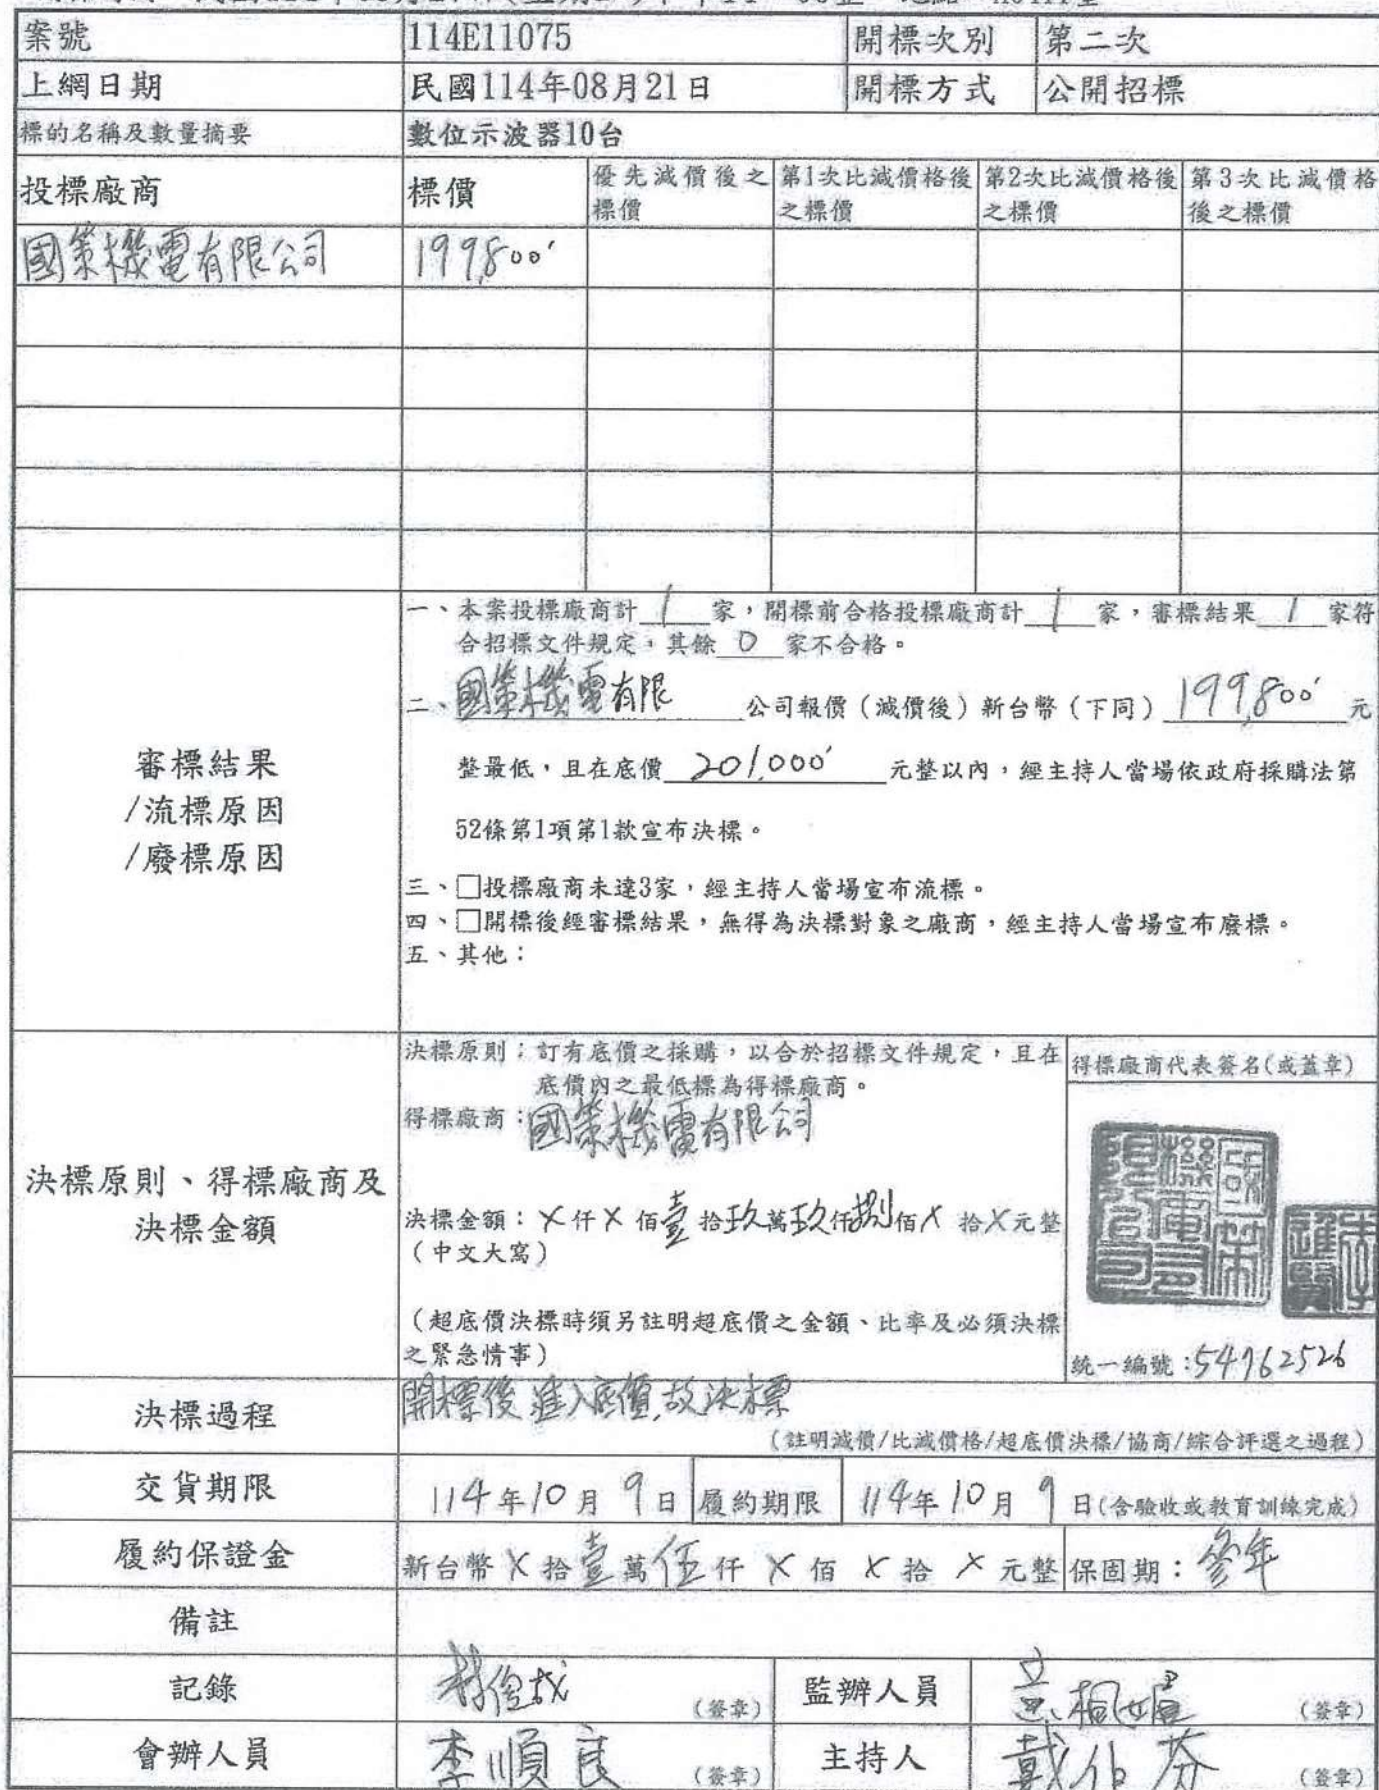 案號 114E11075 開標次別 第二次
上網日期 民國114年08月21日 開標方式 公開招標
標的名稱及數量摘要 數位示波器10台
投標廠商 標價 優先減價後之標價 第1次比減價格後之標價 第2次比減價格後之標價 第3次比減價格後之標價
國策機電有限公司 199,800'
審標結果
/流標原因
/廢標原因
一、本案投標廠商計 1 家,開標前合格投標廠商計 1 家,審標結果 1 家符
合招標文件規定,其餘 0 家不合格。
二、國策機電有限 公司報價(減價後)新台幣(下同) 199,800' 元
整最低,且在底價 201,000' 元整以內,經主持人當場依政府採購法第
52條第1項第1款宣布決標。
三、□投標廠商未達3家,經主持人當場宣布流標。
四、□開標後經審標結果,無得為決標對象之廠商,經主持人當場宣布廢標。
五、其他:
決標原則、得標廠商及
決標金額
決標原則:訂有底價之採購,以合於招標文件規定,且在
底價內之最低標為得標廠商。
得標廠商:國策機電有限公司
決標金額:X仟X佰壹拾玖萬玖仟捌佰X拾X元整
(中文大寫)
(超底價決標時須另註明超底價之金額、比率及必須決標
之緊急情事)
得標廠商代表簽名(或蓋章)
國策機電有限公司
李進賢
統一編號:54962526
決標過程 開標後進入底價,故決標
(註明減價/比減價格/超底價決標/協商/綜合評選之過程)
交貨期限 114年10月9日 履約期限 114年10月9日(含驗收或教育訓練完成)
履約保證金 新台幣X拾壹萬伍仟X佰X拾X元整 保固期:參年
備註
記錄 (簽章) 監辦人員 (簽章)
會辦人員 李順良 (簽章) 主持人 (簽章)